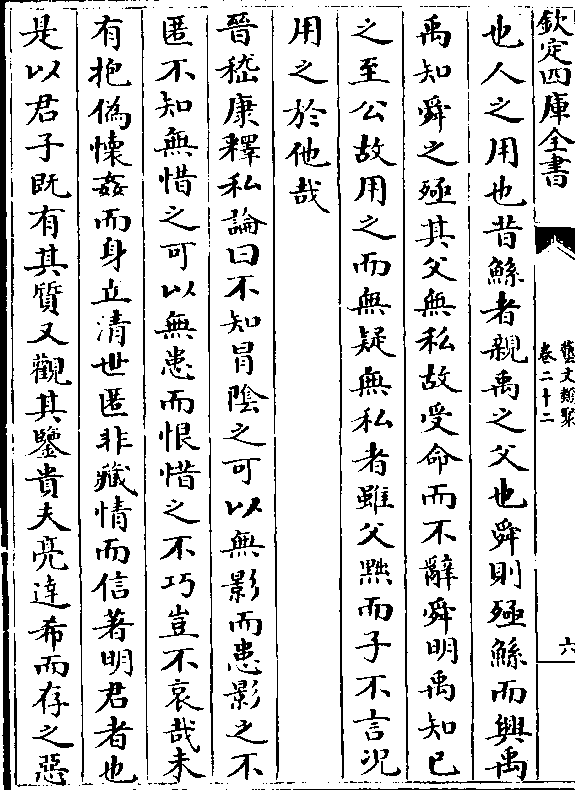 欽定四庫全書
藝文類聚
卷二十二
六
也人之用也昔鯀者親禹之父也舜則殛鯀而興禹
禹知舜之殛其父無私故受命而不辭舜明禹知已
之至公故用之而無疑無私者雖父黜而子不言況
用之於他哉
晉嵇康釋私論曰不知冐陰之可以無影而患影之不
匿不知無惜之可以無患而恨惜之不巧豈不哀哉未
有抱偽懷姦而身立清世匿非藏情而信著明君者也
是以君子既有其質又觀其鑒貴夫亮達希而存之惡